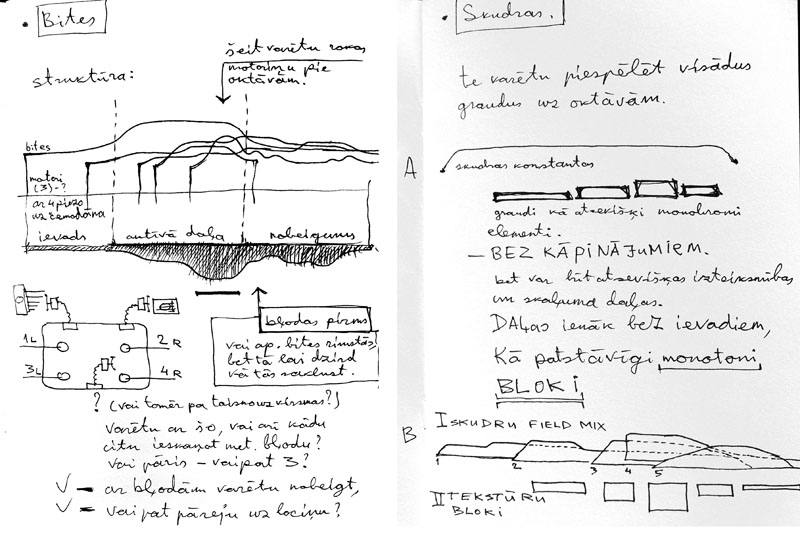 • Bites
struktūra:
šeit varētu rokas
motoriņu pie
oktāvām.
bites
motori
(3)-?
ar 4 pirzo
uz čemodāna
ievads
aktīvā daļa
nobeigums
bļodas pirms
vai ap. bites rimstās,
bet tā lai dzird
kā tās saklust.
1L
2R
3L
4R
? (vai tomēr pa taisno uz virsmas?)
varētu ar šo, vai arī kādu
citu ieskaņot met. bļodu?
vai pāris – vai pat 3?
V – ar bļodām varētu nobeigt,
V = vai pat pāreju uz lociņu?
• Skudras.
te varētu piespēlēt visādus
graudus uz oktāvām.
A
skudras konstantas
graudi kā atsevišķi monohromi
elementi.
– BEZ KĀPINĀJUMIEM.
bet var būt atsevišķas izteiksmības
un skaļuma daļas.
DAĻAS IENĀK BEZ IEVADIEM,
Kā patstāvīgi monotoni
BLOKI
B
I SKUDRU FIELD MIX
1
2
3
4
5
II TEKSTŪRU
BLOKI